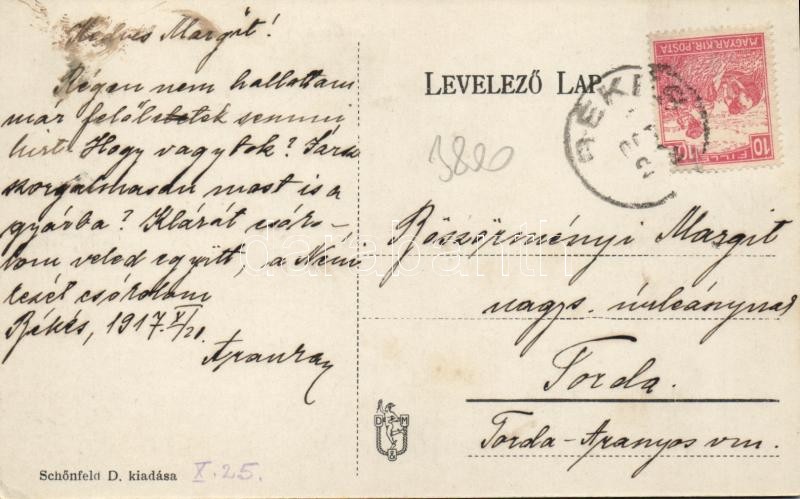 Kedves Margit!
Régen nem hallottam
már felőletek semmi
hirt. Hogy vagytok? Jársz
szorgalmasan most is a
gyárba? Klárát csóko-
lom veled együtt, a Nén
kezét csókolom
Békés, 1917. X/21.
LEVELEZŐ LAP
3820
MAGYAR KIR. POSTA
10 FILLÉR 10
BÉKÉS
Böszörményi Margit
nagys. úrleánynak
Torda.
Torda-Aranyos vm.
D M
Schönfeld D. kiadása X. 25.
darabanth